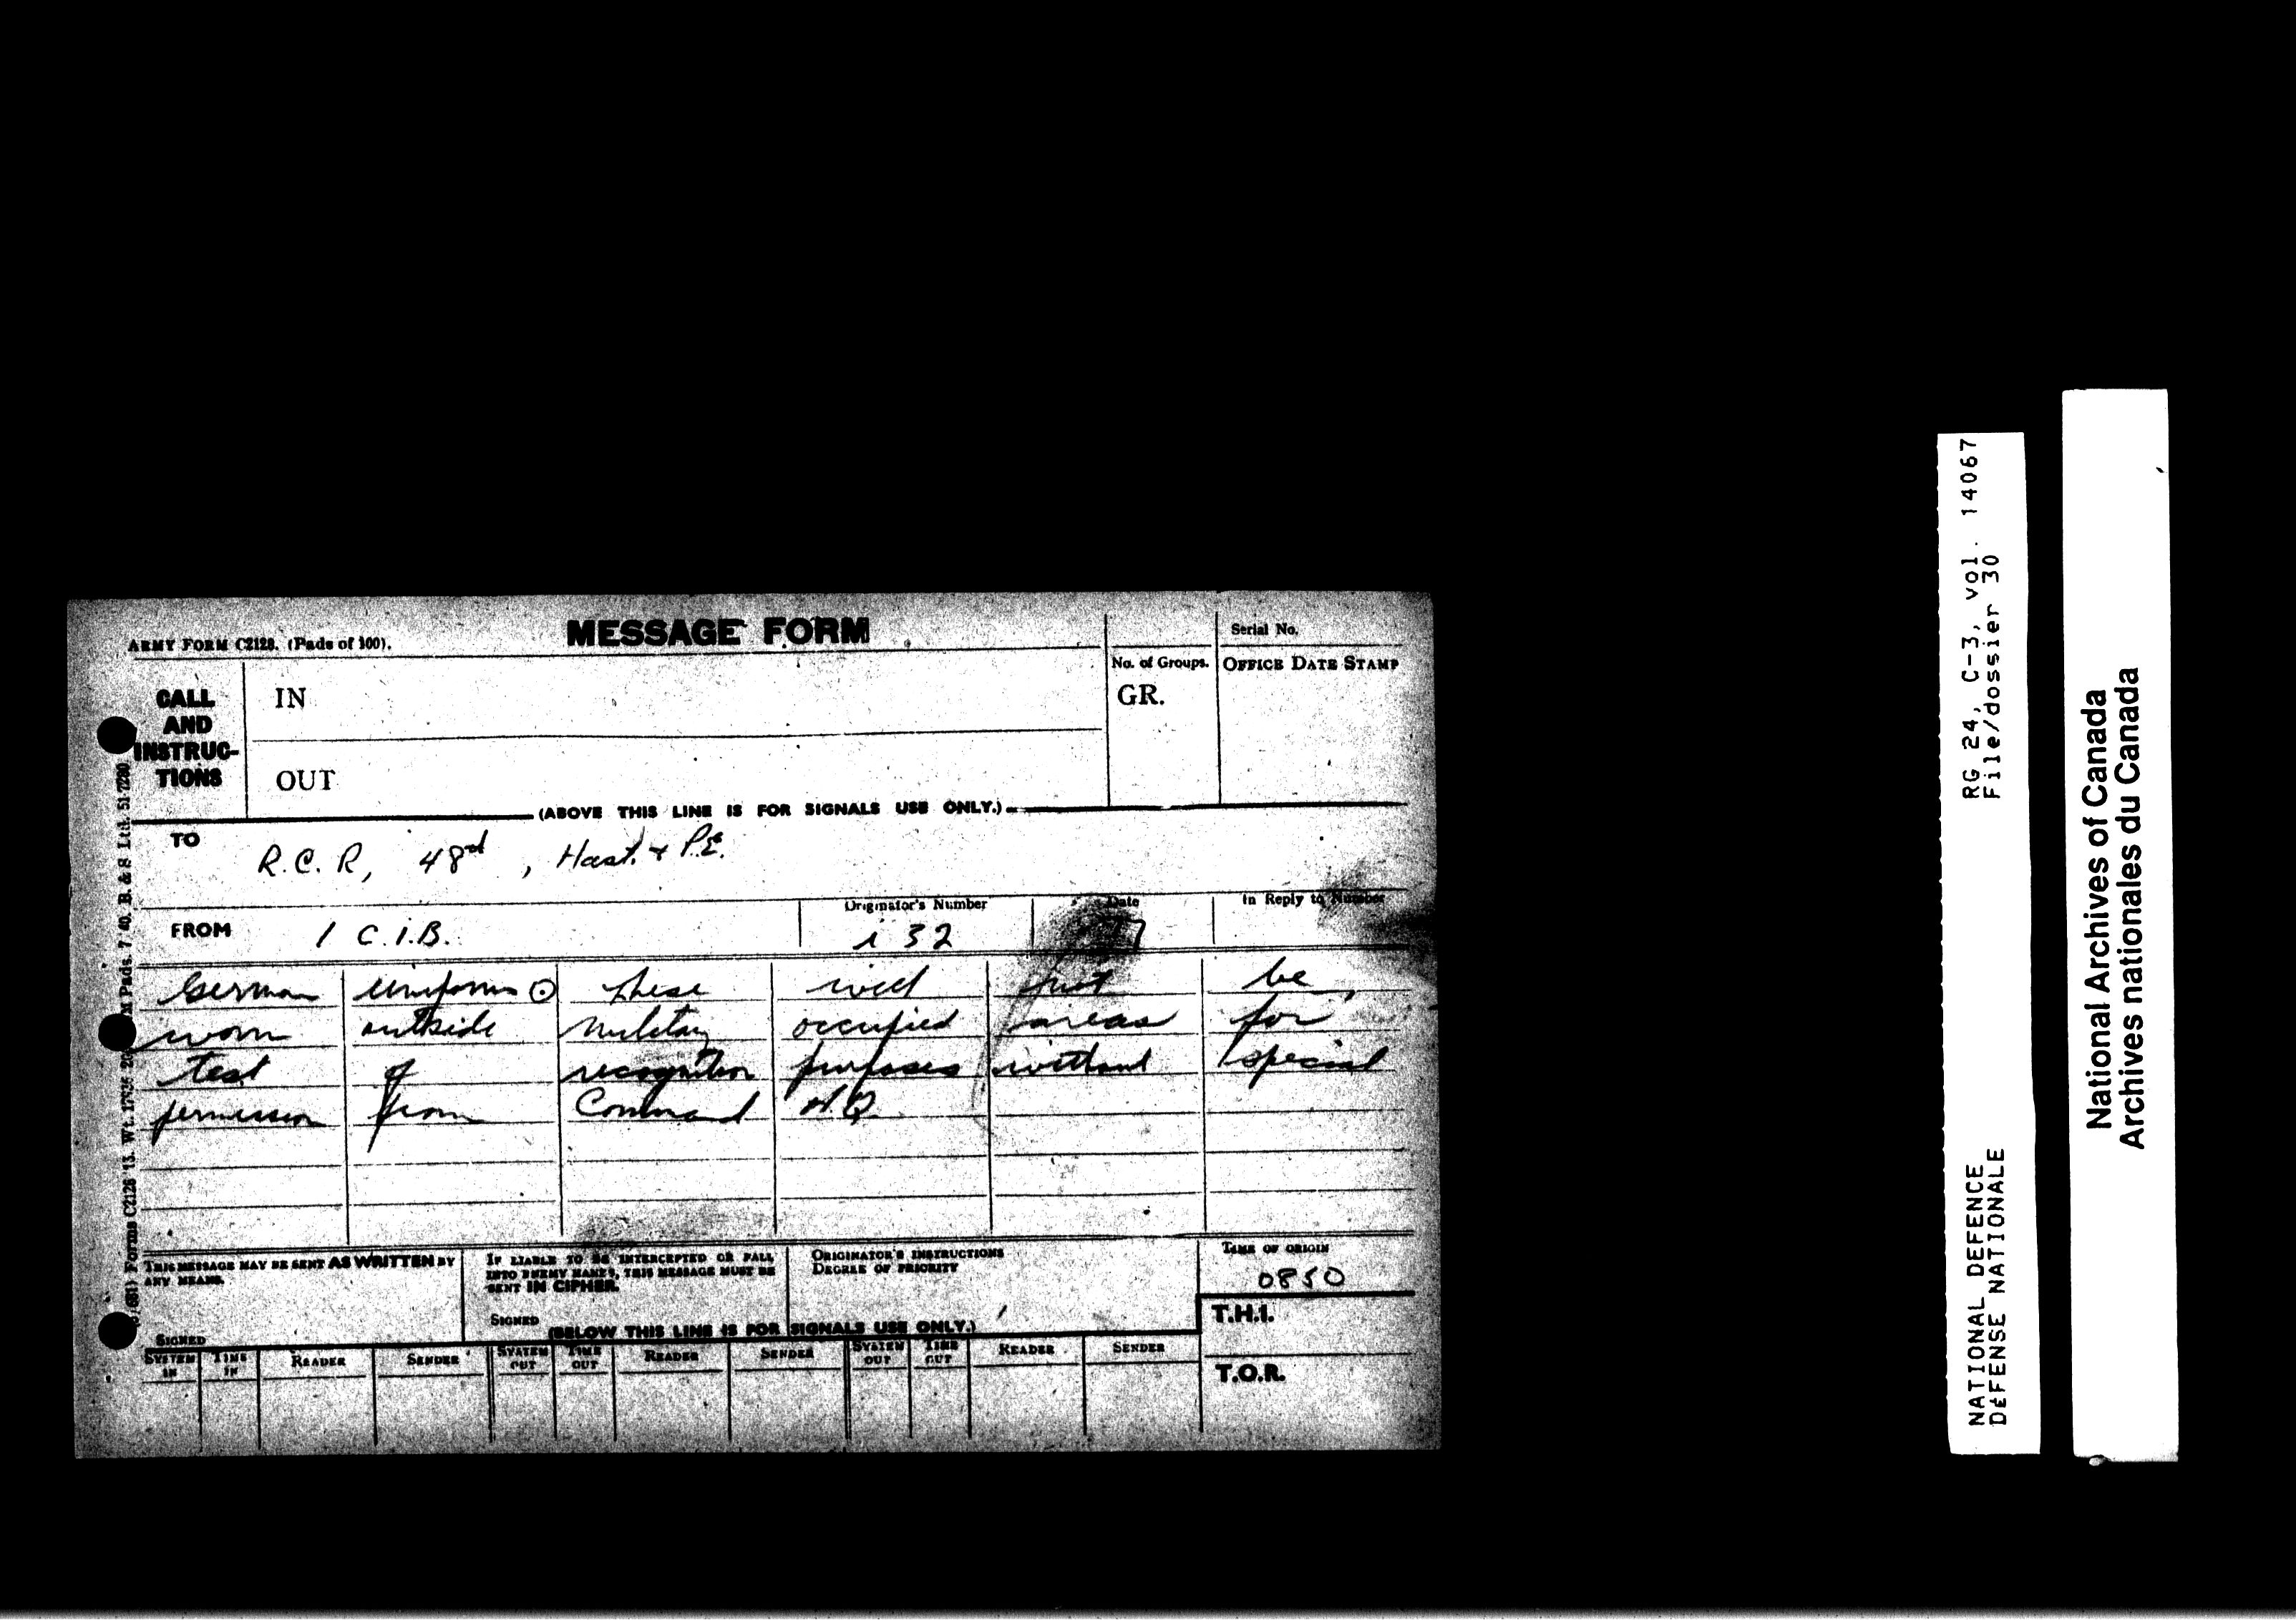 ARMY FORM C2128. (Pads of 100).
MESSAGE FORM
Serial No.
CALL AND INSTRUC-TIONS
IN
OUT
No. of Groups.
GR.
OFFICE DATE STAMP
(ABOVE THIS LINE IS FOR SIGNALS USE ONLY.)
TO
R.C.R, 48rd, Hast. & P.E.
FROM
1 C.I.B.
Originator's Number
i 32
Date
In Reply to Number
German uniforms ⊙ these will not be
worn outside military occupied areas for
test of recognition purposes without special
permission from Command H.Q.
THIS MESSAGE MAY BE SENT AS WRITTEN BY
ANY MEANS.
SIGNED
IF LIABLE TO BE INTERCEPTED OR FALL
INTO ENEMY HANDS, THIS MESSAGE MUST BE
SENT IN CIPHER.
SIGNED
ORIGINATOR'S INSTRUCTIONS
DEGREE OF PRIORITY
TIME OF ORIGIN
0850
T.H.I.
T.O.R.
(BELOW THIS LINE IS FOR SIGNALS USE ONLY.)
SYSTEM IN TIME IN READER SENDER SYSTEM OUT TIME OUT READER SENDER SYSTEM OUT TIME OUT READER SENDER
Forms C2128/13. B. & S. Ltd. 51-7280
NATIONAL DEFENCE RG 24, C-3, vol. 14067
DÉFENSE NATIONALE File/dossier 30
National Archives of Canada
Archives nationales du Canada